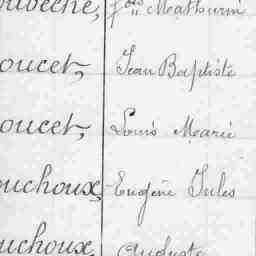 oucet, Jean Baptiste
oucet, Louis Marie
ouchoux, Eugène Jules
uchoux, Auguste